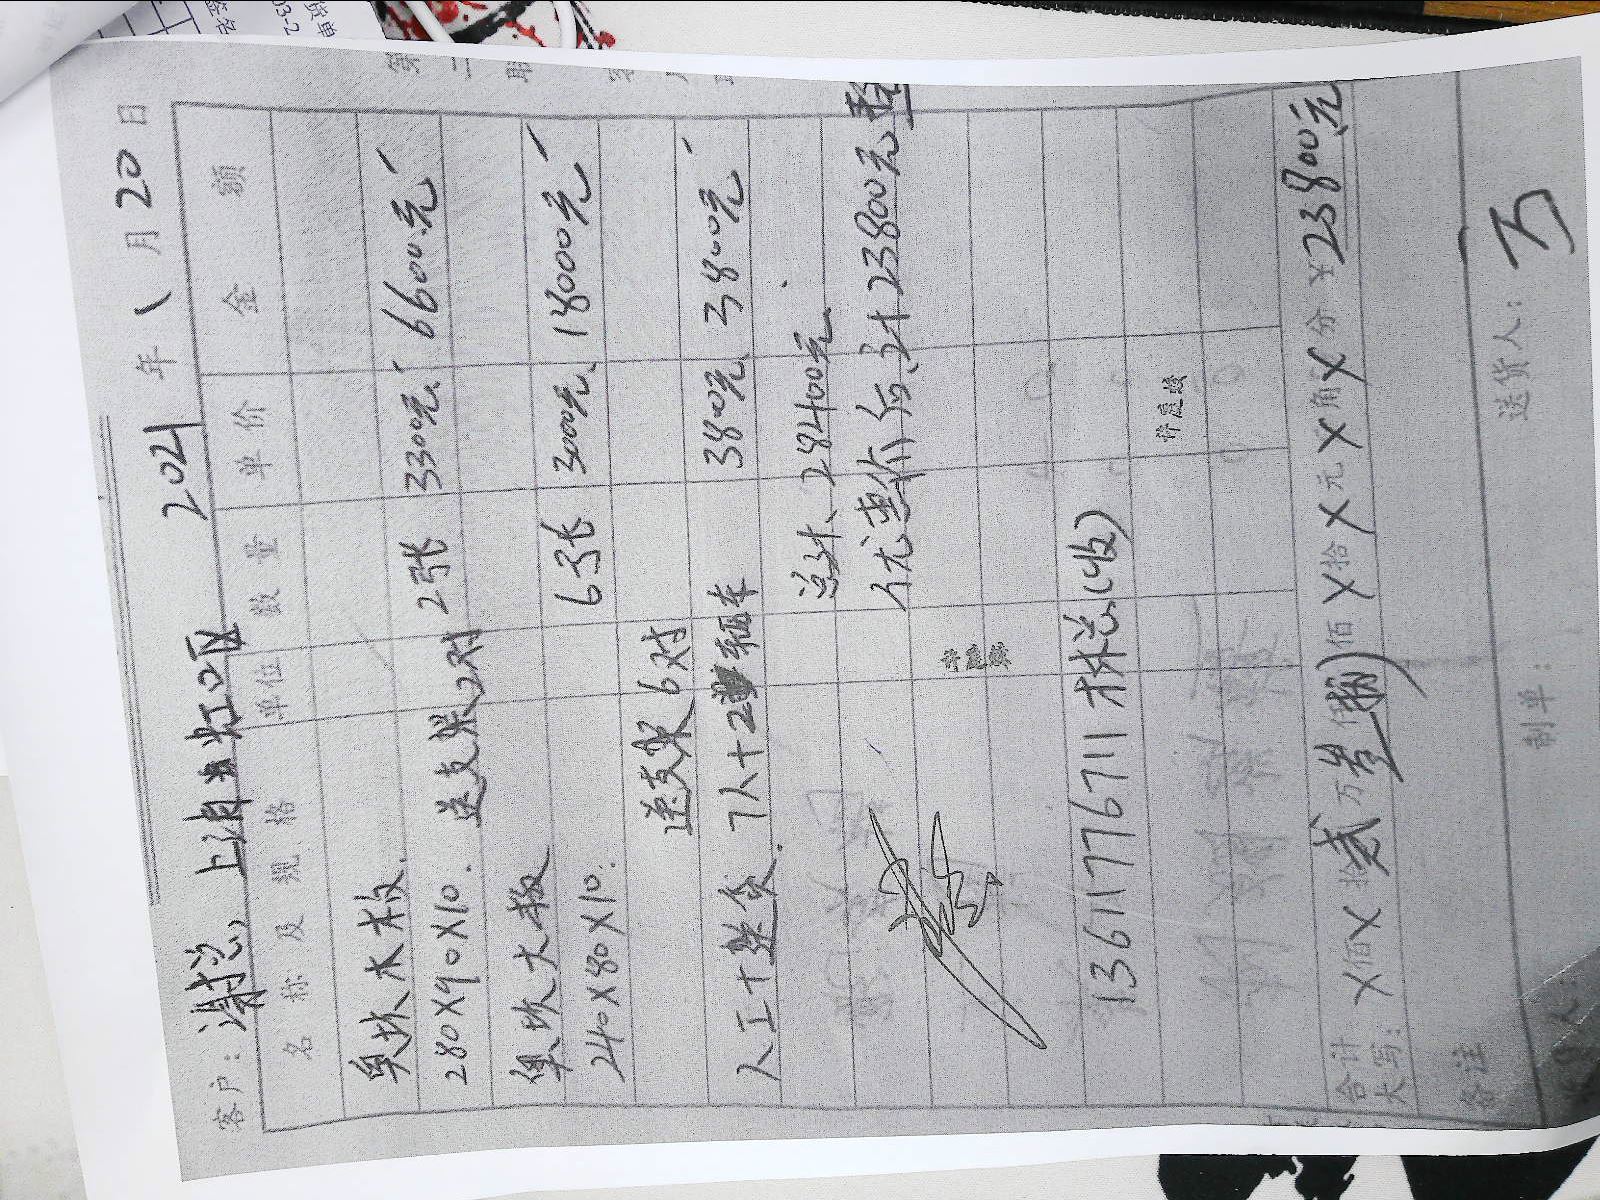 客户：谢总、上海虹口区 2021年1月20日
名称及规格 单位 数量 单价 金额
奥坎木板. 2张 3300元、 6600元
280X90X10. 送支架2对
奥坎大板 6张 3000元、 18000元
240X80X10.
送支架6对
7人+2辆车 3800元、 3800元
总计、28400元
优惠价后、计23800元整
许庭嫒
13611776711 林总(收)
许庭嫒
合计
大写： X佰X拾贰万叁仟捌佰X拾X元X角X分 ¥23800元
备注
制单： 送货人：